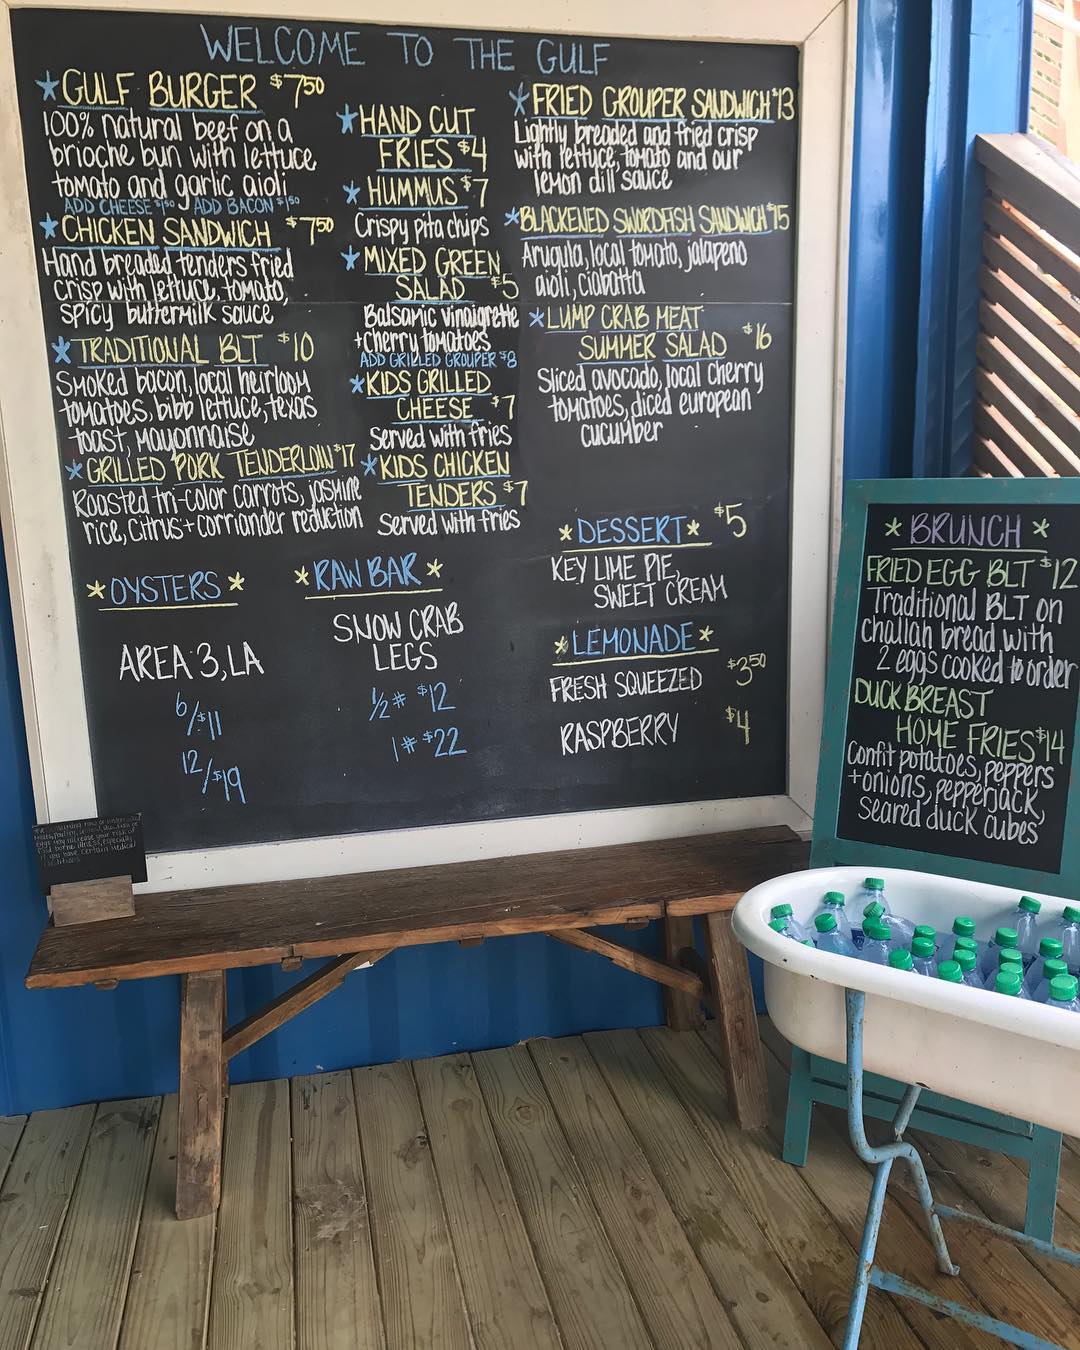 WELCOME TO THE GULF
*GULF BURGER $7.50
100% natural beef on a
brioche bun with lettuce
tomato and garlic aioli
ADD CHEESE $1.50 ADD BACON $1.50
*CHICKEN SANDWICH $7.50
Hand breaded tenders fried
crisp with lettuce, tomato,
spicy buttermilk sauce
*TRADITIONAL BLT $10
Smoked bacon, local heirloom
tomatoes, bibb lettuce, texas
toast, mayonnaise
*GRILLED PORK TENDERLOIN $17
Roasted tri-color carrots, jasmine
rice, citrus + corriander reduction
*HAND CUT
FRIES $4
*HUMMUS $7
Crispy pita chips
*MIXED GREEN
SALAD $5
Balsamic vinaigrette
+cherry tomatoes
ADD GRILLED GROUPER $8
*KIDS GRILLED
CHEESE $7
Served with fries
*KIDS CHICKEN
TENDERS $7
Served with fries
*FRIED GROUPER SANDWICH $13
Lightly breaded and fried crisp
with lettuce, tomato and our
lemon dill sauce
*BLACKENED SWORDFISH SANDWICH $15
Arugula, local tomato, jalapeno
aioli, ciabatta
*LUMP CRAB MEAT
SUMMER SALAD $16
Sliced avocado, local cherry
tomatoes, diced european
cucumber
*OYSTERS*
AREA 3, LA
6/$11
12/$19
*RAW BAR*
SNOW CRAB
LEGS
1/2# $12
1# $22
*DESSERT* $5
KEY LIME PIE,
SWEET CREAM
*LEMONADE*
FRESH SQUEEZED $3.50
RASPBERRY $4
*BRUNCH*
FRIED EGG BLT $12
Traditional BLT on
challah bread with
2 eggs cooked to order
DUCK BREAST
HOME FRIES $14
Confit potatoes, peppers
+onions, pepperjack,
seared duck cubes
raw or
may increase your risk of
food borne illness, especially
if you have certain medical
conditions